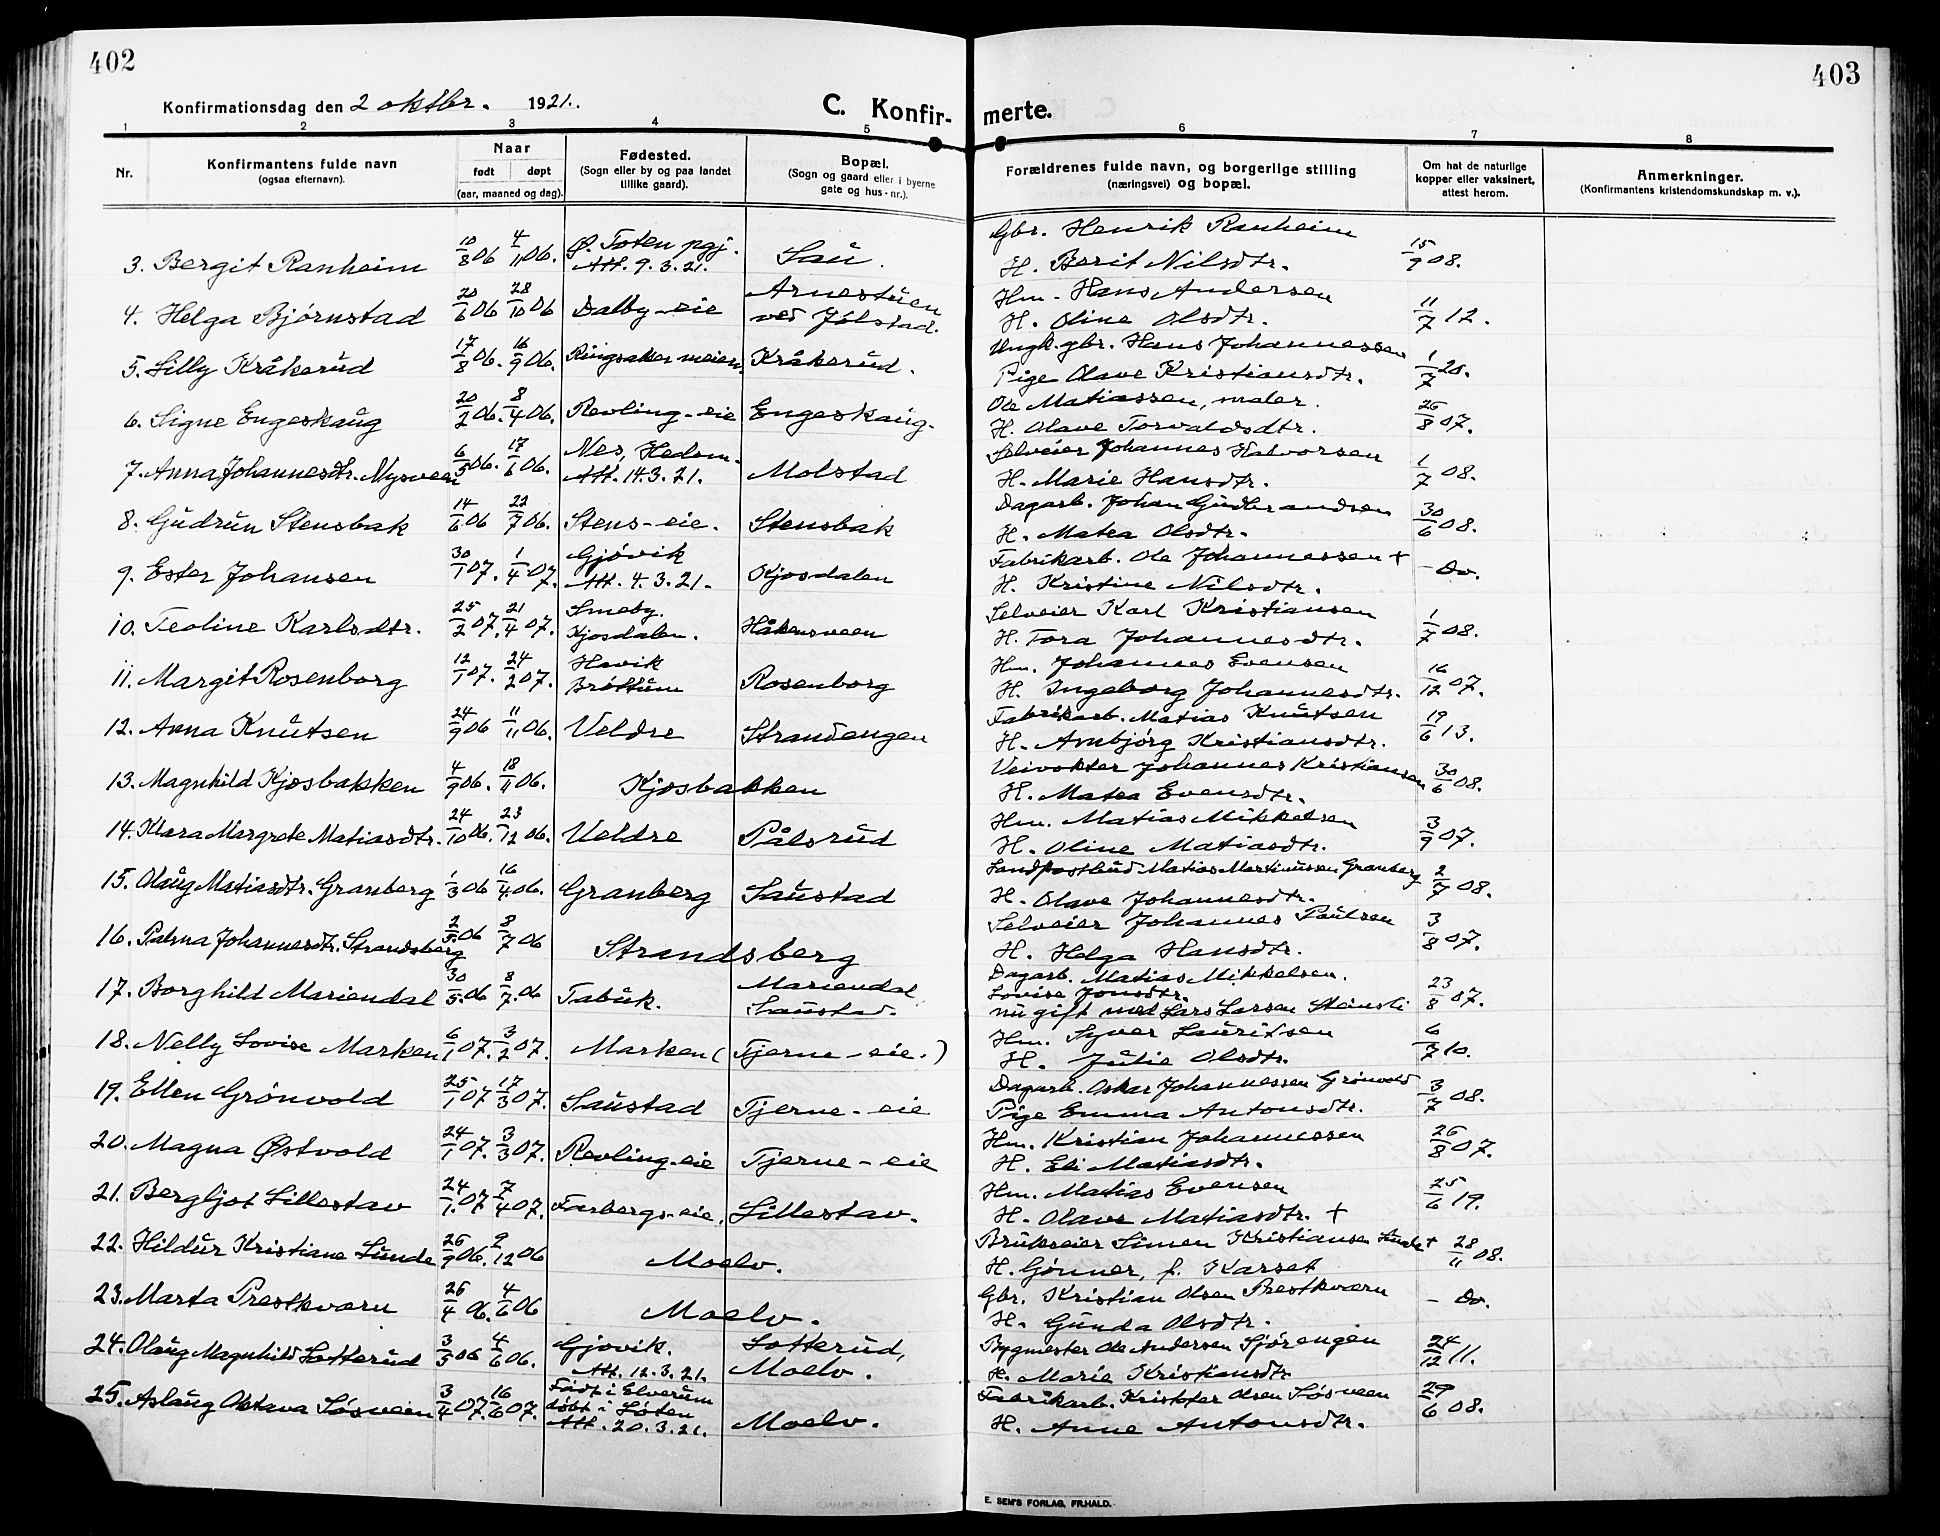 402
Konfirmationsdag den 2 oktbr. 1921.
C. Konfir-
1 2 3 4 5
Nr.
Konfirmantens fulde navn
(ogsaa efternavn).
Naar
født døpt
(aar, maaned og dag).
Fødested.
(Sogn eller by og paa landet
tillike gaard).
Bopæl.
(Sogn og gaard eller i byerne
gate og hus-nr.).
3. Bergit Ranheim 10/8 06 4/11 06. Ø. Toten pgj. Att. 9.3.21. Sau.
4. Helga Bjørnstad 20/6 06 28/10 06 Dalby-eie Arnestuen ved Jølstad.
5. Lilly Kråkerud 17/8 06. 16/9 06. Ringsaker meieri Kråkerud.
6. Signe Engeskaug 20/2 06. 8/4 06. Revling-eie Engeskaug.
7. Anna Johannesdtr. Nysveen 6/5 06. 17/6 06. Nes, Hedem. Att. 14.3.21. Molstad
8. Gudrun Stensbak 14/6 06 22/7 06. Stens-eie. Stensbak
9. Ester Johansen 30/1 07. 1/4 07. Gjøvik Att. 4.3.21. Kjosdalen
10. Teoline Karlsdtr. 25/2 07. 21/4 07. Smeby. Kjosdalen. Håkensveen
11. Margit Rosenborg 12/1 07. 24/2 07. Hovik Brøttum Rosenborg
12. Anna Knutsen 24/9 06 11/11 06. Veldre Strandengen
13. Magnhild Kjosbakken 4/9 06. 18/11 06. Kjosbakken
14. Klara Margrete Matiasdtr. 24/10 06. 23/12 06. Veldre Pålsrud
15. Olaug Matiasdtr. Granberg 1/3 06 16/4 06. Granberg Saustad
16. Palma Johannesdtr. Strandsberg 2/5 06 8/7 06 Strandsberg
17. Borghild Mariendal 30/5 06 8/7 06 Tabuk. Mariendal, Saustad.
18. Nelly Lovise Marken 6/1 07. 3/2 07. Marken (Tjerne-eie.)
19. Ellen Grönvold 25/1 07 17/3 07. Saustad Tjerne-eie
20. Magna Østvold 24/1 07. 3/3 07. Revling-eie Tjerne-eie
21. Bergljot Lillestav 24/1 07 7/4 07. Farbergs-eie. Lillestav.
22. Hildur Kristiane Lunde 26/9 06. 2/12 06 Moelv.
23. Marta Prestkværn 26/4 06. 4/6 06 Moelv.
24. Olaug Magnhild Lotterud 3/5 06 4/6 06. Gjøvik. Att. 12.3.21. Lotterud, Moelv.
25. Aslaug Oktava Løsveen 3/4 07. 16/6 07. Født i Elverum døbt i Løten Att. 20.3.21. Moelv.
403
merte.
6 7 8
Forældrenes fulde navn, og borgerlige stilling
(næringsvei) og bopæl.
Om hat de naturlige
kopper eller vaksinert,
attest herom.
Anmerkninger.
(Konfirmantens kristendomskundskap m. v.).
Gbr. Henrik Ranheim
H. Berit Nilsdtr. 15/9 08.
Hm. Hans Andersen
H. Oline Olsdtr. 11/7 12.
Ungk. gbr. Hans Johannessen
Pige Olave Kristiansdtr. 1/7 20.
Ole Matiassen, maler.
H. Olave Torvaldsdtr. 26/8 07.
Selveier Johannes Halvorsen
H. Marie Hansdtr. 1/7 08.
Dagarb. Johan Gudbrandsen
H. Matea Olsdtr. 30/6 08.
Fabrikarb. Ole Johannessen +
H. Kristine Nilsdtr. - Do.
Selveier Karl Kristiansen
H. Tora Johannesdtr. 1/7 08.
Hm. Johannes Evensen
H. Ingeborg Johannesdtr. 16/12 07.
Fabrikarb. Matias Knutsen
H. Arnbjørg Kristiansdtr. 19/6 13.
Veivokter Johannes Kristiansen
H. Matea Evensdtr. 30/6 08.
Hm. Matias Mikkelsen
H. Oline Matiasdtr. 3/9 07.
Landpostbud Matias Martinussen Granberg
H. Olave Johannesdtr. 2/7 08.
Selveier Johannes Paulsen
H. Helga Hansdtr. 3/8 07.
Dagarb. Matias Mikkelsen.
Lovise Jonsdtr.
nu gift med Lars Larsen Stensli 23/8 07.
Hm. Syver Lauritsen
H. Julie Olsdtr. 6/7 10.
Dagarb. Oskar Johannessen Grönvold
Pige Emma Antonsdtr. 3/7 08.
Hm. Kristian Johannessen
H. Eli Matiasdtr. 26/8 07.
Hm. Matias Evensen
H. Olave Matiasdtr. + 25/6 19.
Brukseier Simen Kristiansen Lunde +
H. Gunner, f. Karset 28/11 08.
Gbr. Kristian Olsen Prestkværn
H. Gunda Olsdtr. - Do.
Bygmester Ole Andersen Sjørengen
H. Marie Kristiansdtr 24/12 11.
Fabrikarb. Kristofer Olsen Løsveen
H. Anne Antonsdtr. 29/6 08.
E. SEM'S FORLAG, FR.HALD.